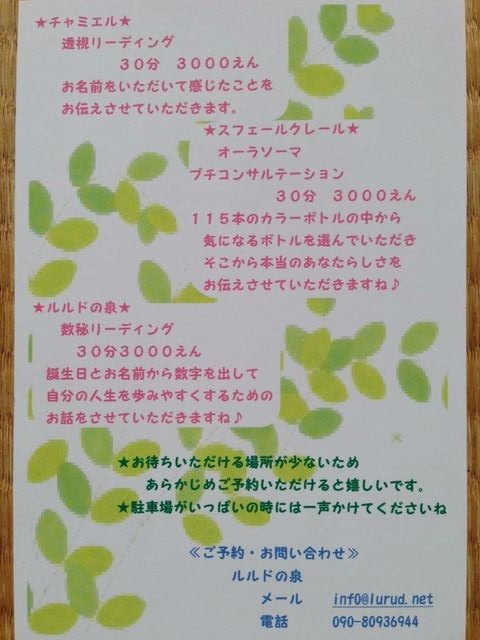 ★チャミエル★
透視リーディング
３０分　３０００えん
お名前をいただいて感じたことを
お伝えさせていただきます。
★スフェールクレール★
オーラソーマ
プチコンサルテーション
３０分　３０００えん
１１５本のカラーボトルの中から
気になるボトルを選んでいただき
そこから本当のあなたらしさを
お伝えさせていただきますね♪
★ルルドの泉★
数秘リーディング
３０分３０００えん
誕生日とお名前から数字を出して
自分の人生を歩みやすくするための
お話をさせていただきますね♪
★お待ちいただける場所が少ないため
あらかじめご予約いただけると嬉しいです。
★駐車場がいっぱいの時には一声かけてくださいね
≪ご予約・お問い合わせ≫
ルルドの泉
メール　info@lurud.net
電話　090-80936944